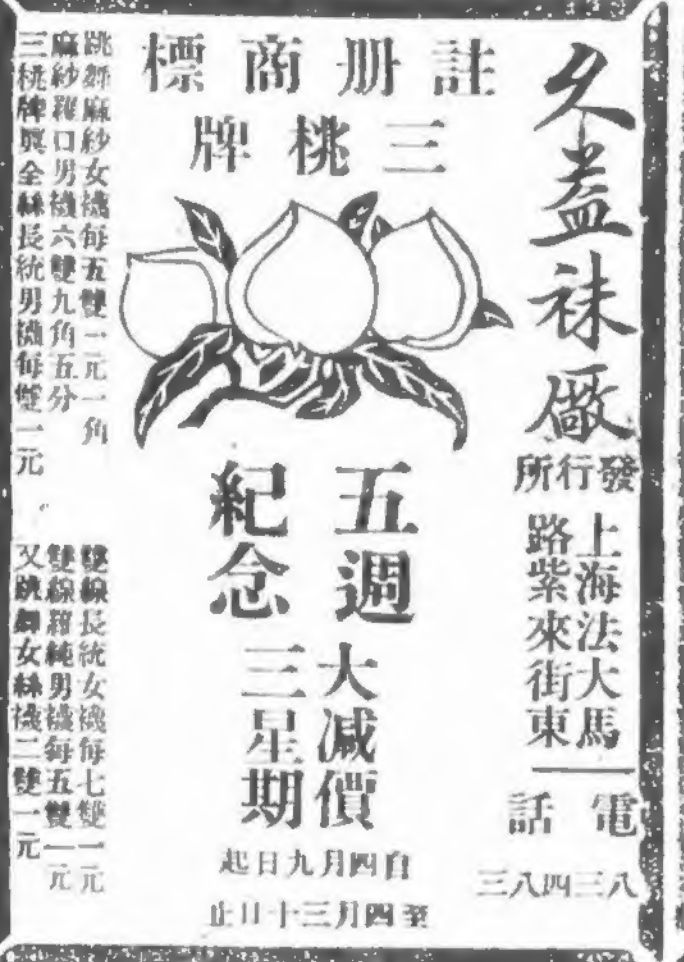 久益襪廠
發行所
上海法大馬
路紫來街東
電話
八三四八三
註册商標
三桃牌
五週
紀念
大減價
三星期
自四月九日起
至四月三十日止
跳舞麻紗女襪每五雙一元一角
麻紗羅口男襪六雙九角五分
三桃牌眞全絲長統男襪每雙一元
雙線長統女襪每七雙一元
雙線羅純男襪每五雙一元
又跳舞女絲襪二雙一元